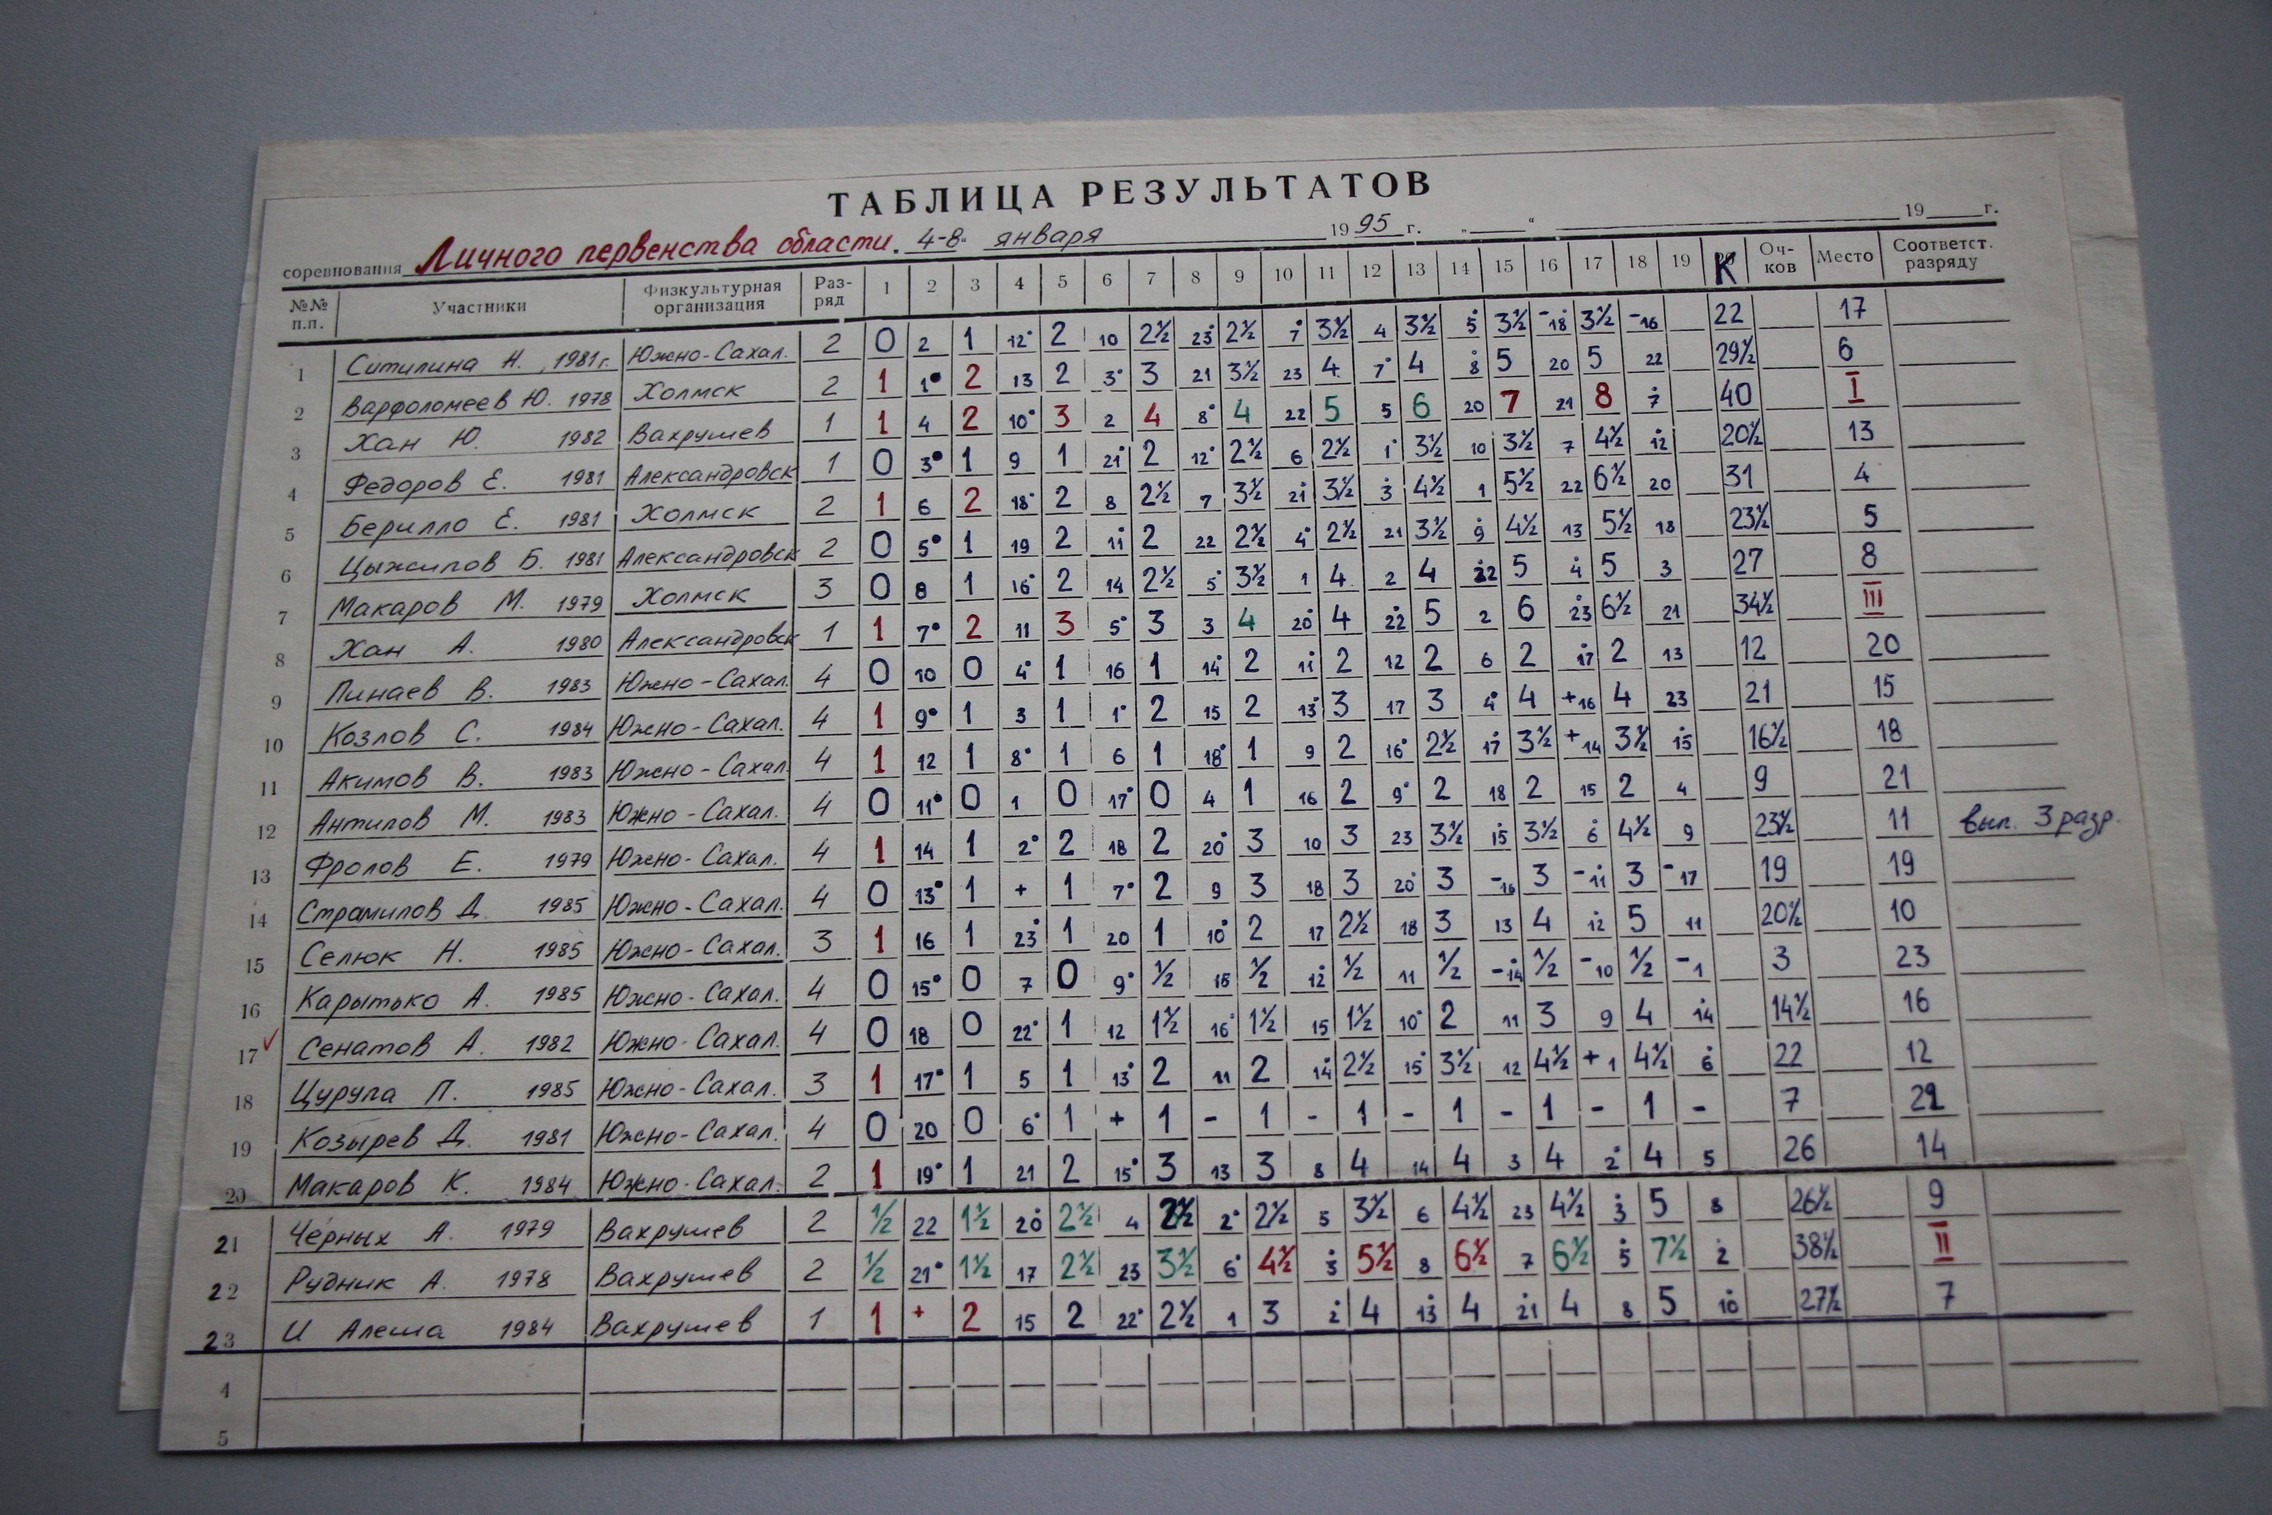 ТАБЛИЦА РЕЗУЛЬТАТОВ
соревнования Личного первенства области. 4-8. января 1995 г. „ “ 19 г.
№№ п.п. Участники Физкультурная организация Раз-ряд 1 2 3 4 5 6 7 8 9 10 11 12 13 14 15 16 17 18 19 К Оч-ков Место Соответст. разряду
1 Ситилина Н., 1981г. Южно-Сахал. 2 0 2 1 12• 2 10 2½ 23• 2½ 7• 3½ 4 3½ 5• 3½ -18• 3½ -16 22 17
2 Варфоломеев Ю. 1978 Холмск 2 1 1• 2 13 2 3• 3 21 3½ 23 4 7• 4 8• 5 20 5 22 29½ 6
3 Хан Ю. 1982 Вахрушев 1 1 4 2 10• 3 2 4 8• 4 22 5 5 6 20 7 21 8 7• 40 I
4 Федоров Е. 1981 Александровск 1 0 3• 1 9 1 21• 2 12• 2½ 6 2½ 1• 3½ 10 3½ 7 4½ 12• 20½ 13
5 Берилло Е. 1981 Холмск 2 1 6 2 18• 2 8 2½ 7 3½ 21• 3½ 3• 4½ 1 5½ 22 6½ 20 31 4
6 Цыжипов Б. 1981 Александровск 2 0 5• 1 19 2 11• 2 22 2½ 4• 2½ 21 3½ 9• 4½ 13 5½ 18 23½ 5
7 Макаров М. 1979 Холмск 3 0 8 1 16• 2 14 2½ 5• 3½ 1 4 2 4 22• 5 4• 5 3 27 8
8 Хан А. 1980 Александровск 1 1 7• 2 11 3 5• 3 3 4 20• 4 22• 5 2 6 23• 6½ 21 34½ III
9 Пинаев В. 1983 Южно-Сахал. 4 0 10 0 4• 1 16 1 14• 2 11• 2 12 2 6 2 17• 2 13 12 20
10 Козлов С. 1984 Южно-Сахал. 4 1 9• 1 3 1 1• 2 15 2 13• 3 17 3 4• 4 +16 4 23 21 15
11 Акимов В. 1983 Южно-Сахал. 4 1 12 1 8• 1 6 1 18• 1 9 2 16• 2½ 17• 3½ +14 3½ 15• 16½ 18
12 Антипов М. 1983 Южно-Сахал. 4 0 11• 0 1 0 17• 0 4 1 16 2 9• 2 18 2 15 2 4 9 21
13 Фролов Е. 1979 Южно-Сахал. 4 1 14 1 2• 2 18 2 20• 3 10 3 23 3½ 15• 3½ 6• 4½ 9 23½ 11 вып. 3 разр.
14 Страмилов Д. 1985 Южно-Сахал. 4 0 13• 1 + 1 7• 2 9 3 18 3 20• 3 -16 3 -11• 3 -17 19 19
15 Селюк Н. 1985 Южно-Сахал. 3 1 16 1 23• 1 20 1 10• 2 17 2½ 18 3 13 4 12• 5 11 20½ 10
16 Карытько А. 1985 Южно-Сахал. 4 0 15• 0 7 0 9• ½ 15 ½ 12• ½ 11 ½ -14• ½ -10 ½ -1 3 23
17 ✓ Сенатов А. 1982 Южно-Сахал. 4 0 18 0 22• 1 12 1½ 16• 1½ 15 1½ 10• 2 11 3 9 4 14• 14½ 16
18 Цурупа П. 1985 Южно-Сахал. 3 1 17• 1 5 1 13• 2 11 2 14• 2½ 15• 3½ 12 4½ +1 4½ 6• 22 12
19 Козырев Д. 1981 Южно-Сахал. 4 0 20 0 6• 1 + 1 - 1 - 1 - 1 - 1 - 1 - 7 22
20 Макаров К. 1984 Южно-Сахал. 2 1 19• 1 21 2 15• 3 13 3 8 4 14 4 3 4 2• 4 5 26 14
21 Черных А. 1979 Вахрушев 2 ½ 22 1½ 20• 2½ 4 2½ 2• 2½ 5 3½ 6 4½ 23 4½ 3• 5 8 26½ 9
22 Рудник А. 1978 Вахрушев 2 ½ 21• 1½ 17 2½ 23 3½ 6• 4½ 3• 5½ 8 6½ 7 6½ 5• 7½ 2• 38½ II
23 И Алеша 1984 Вахрушев 1 1 + 2 15 2 22• 2½ 1 3 2• 4 13• 4 21• 4 8 5 10• 27½ 7
4
5